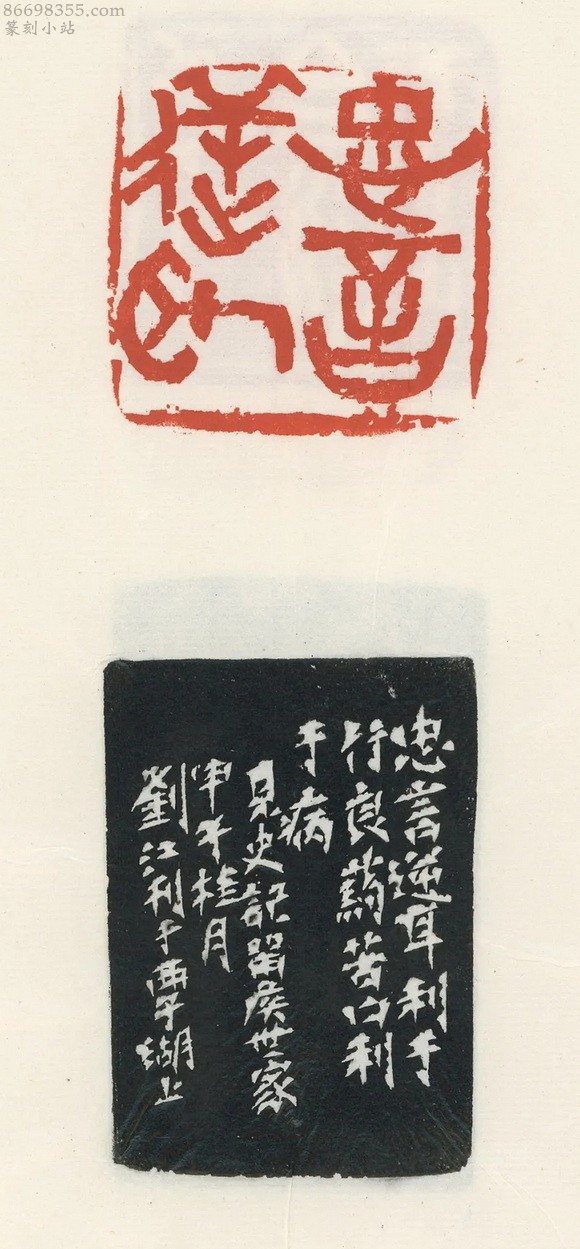 86698355.com
篆刻小站
忠言
逆耳
忠言逆耳利于
行良药苦口利
于病
見史記留侯世家
甲午桂月
劉江刊于西子湖上